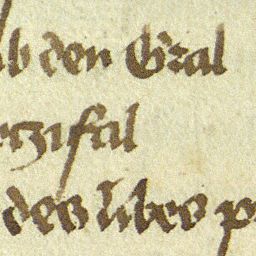 ob den Gral
rtzifal
des libes p